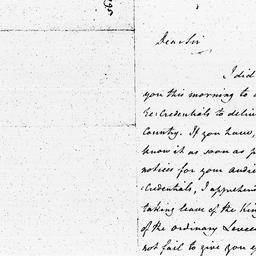 Dear Sir
I did
you this morning to
Re:Credentials to deliver
Country. If you have,
know it as soon as
notices for your audi
:Credentials, I apprehend
taking leave of the Kin
of the ordinary Levees
not fail to give you